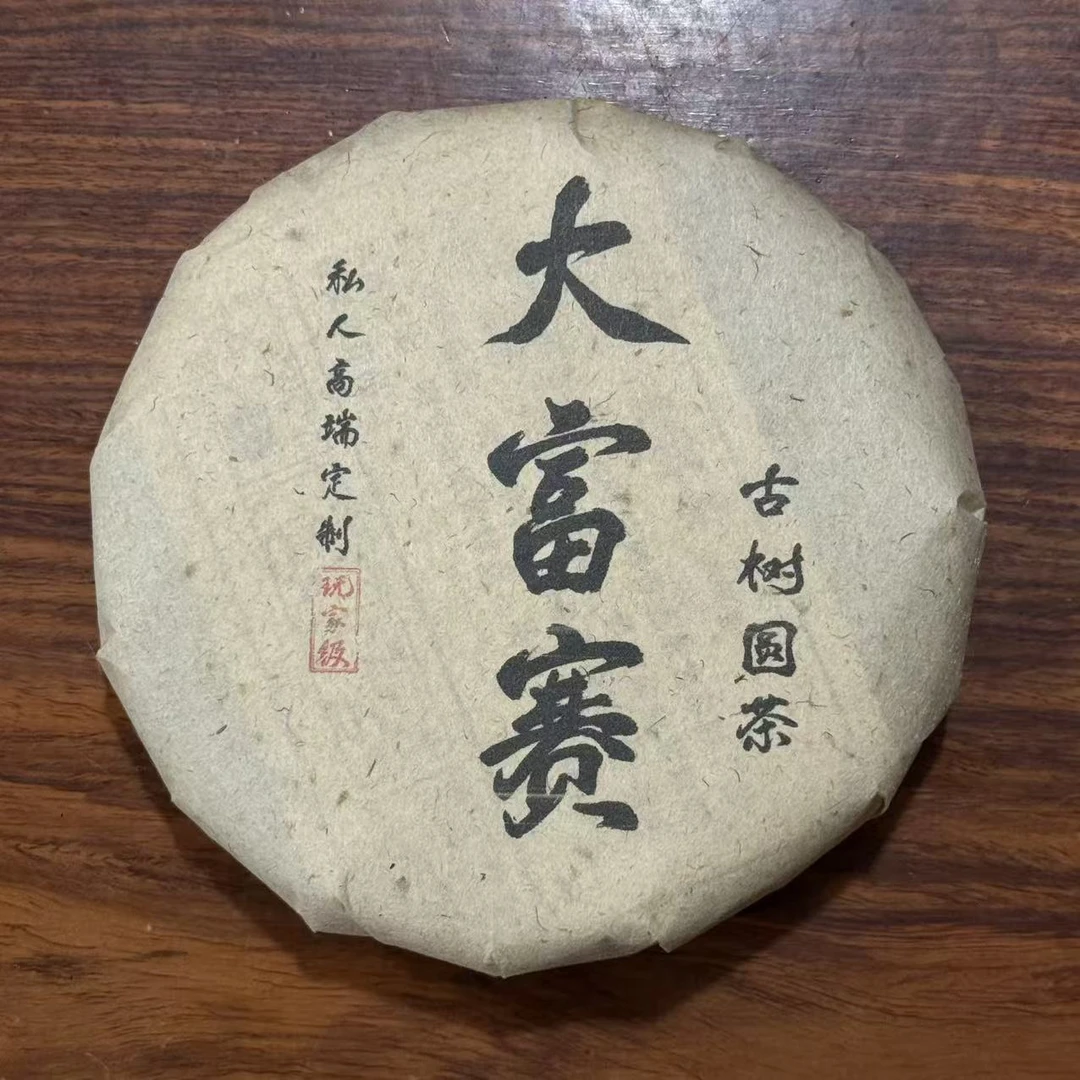 古树圆茶
大富赛
私人高瑞定制
玩家级